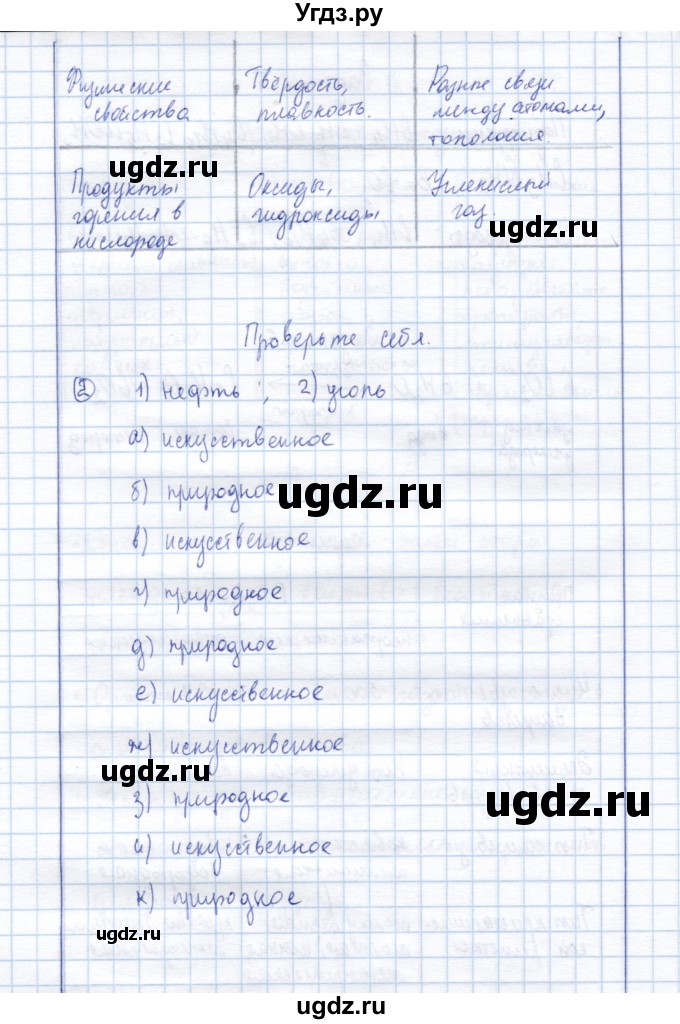 Угдз.ру
Физические свойства
Твёрдость, плавкость.
Разные связи между атомами, топология.
ugdz.ru
Продукты горения в кислороде
Оксиды, гидроксиды
Углекислый газ.
ugdz.ru
Проверьте себя.
2 1) нефть ; 2) уголь
а) искусственное
б) природное
ugdz.ru
в) искусственное
г) природное
д) природное
е) искусственное
ж) искусственное
ugdz.ru
з) природное
ugdz.ru
и) искусственное
к) природное
ugdz.ru
ugdz.ru